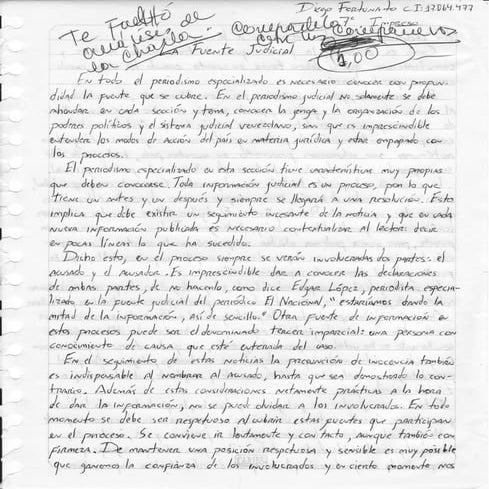 Diego Fortunato C.I: 17064.477
7° Impreso
Te Faltó
análisis de
la charla.
La Fuente Judicial
1,00
En todo el periodismo especializado es necesario conocer con profun-
didad la fuente que se cubre. En el periodismo judicial no solamente se debe
ahondar en cada sección y tema, conocer la jerga y la organización de los
poderes políticos y el sistema judicial venezolano, sino que es imprescindible
entender los modos de acción del país en materia jurídica y estar empapado con
los procesos.
El periodismo especializado en esta sección tiene características muy propias
que deben conocerse. Toda información judicial es un proceso, por lo que
tiene un antes y un después y siempre se llegará a una resolución. Esto
implica que debe existir un seguimiento incesante de la noticia y que en cada
nueva información publicada es necesario contextualizar al lector: decir
en pocas líneas lo que ha sucedido.
Dicho esto, en el proceso siempre se verán involucradas dos partes: el
acusado y el acusador. Es imprescindible dar a conocer las declaraciones
de ambas partes, de no hacerlo, como dice Edgar López, periodista especia-
lizado en la fuente judicial del periódico El Nacional, "estaríamos dando la
mitad de la información, así de sencillo." Otra fuente de información en
estos procesos puede ser el denominado tercer imparcial: una persona con
conocimiento de causa que esté enterada del caso.
En el seguimiento de estas noticias la presunción de inocencia también
es indispensable al nombrar al acusado, hasta que sea demostrado lo con-
trario. Además de estas consideraciones netamente prácticas a la hora
de dar la información, no se puede olvidar a los involucrados. En todo
momento se debe ser respetuoso al cubrir estas fuentes que participan
en el proceso. Se conviene ir lentamente y con tacto, aunque también con
firmeza. De mantener una posición respetuosa y sensible es muy posible
que ganemos la confianza de los involucrados y en cierto momento nos